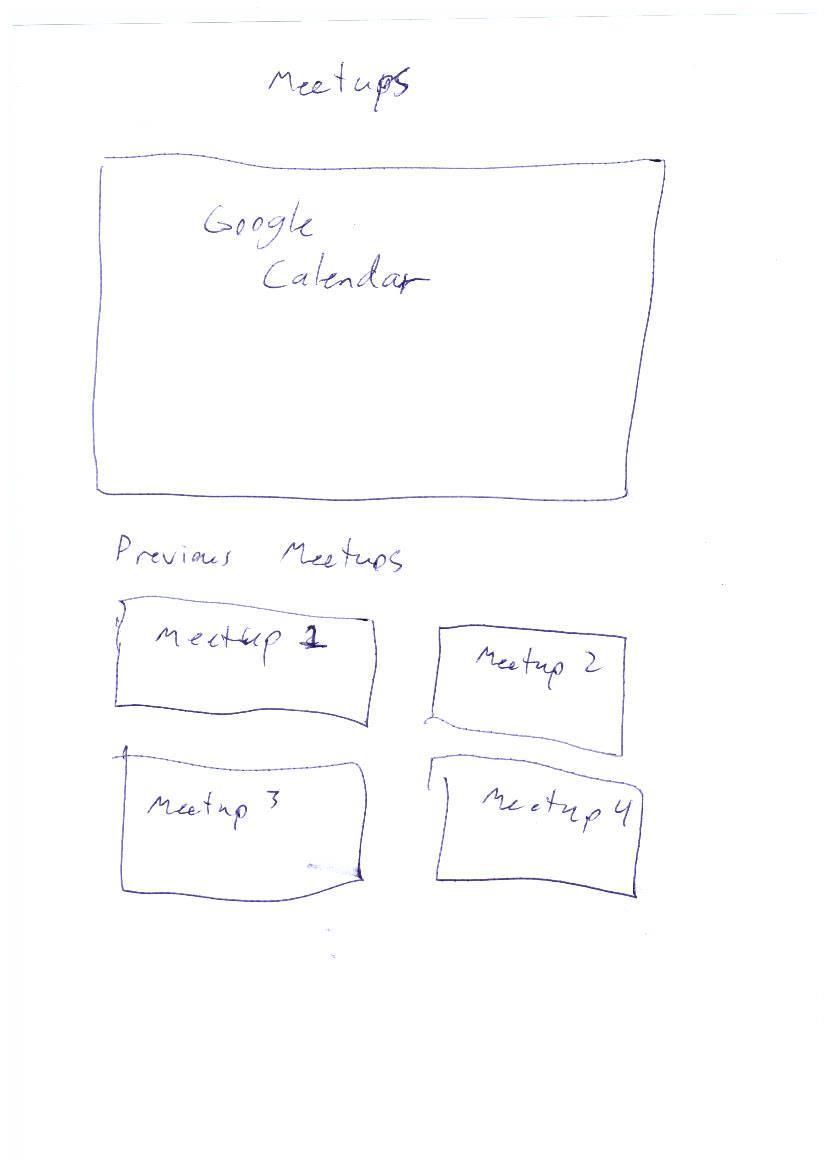 Meetups
Google
Calendar
Previous Meetups
Meetup 1
Meetup 2
Meetup 3
Meetup 4